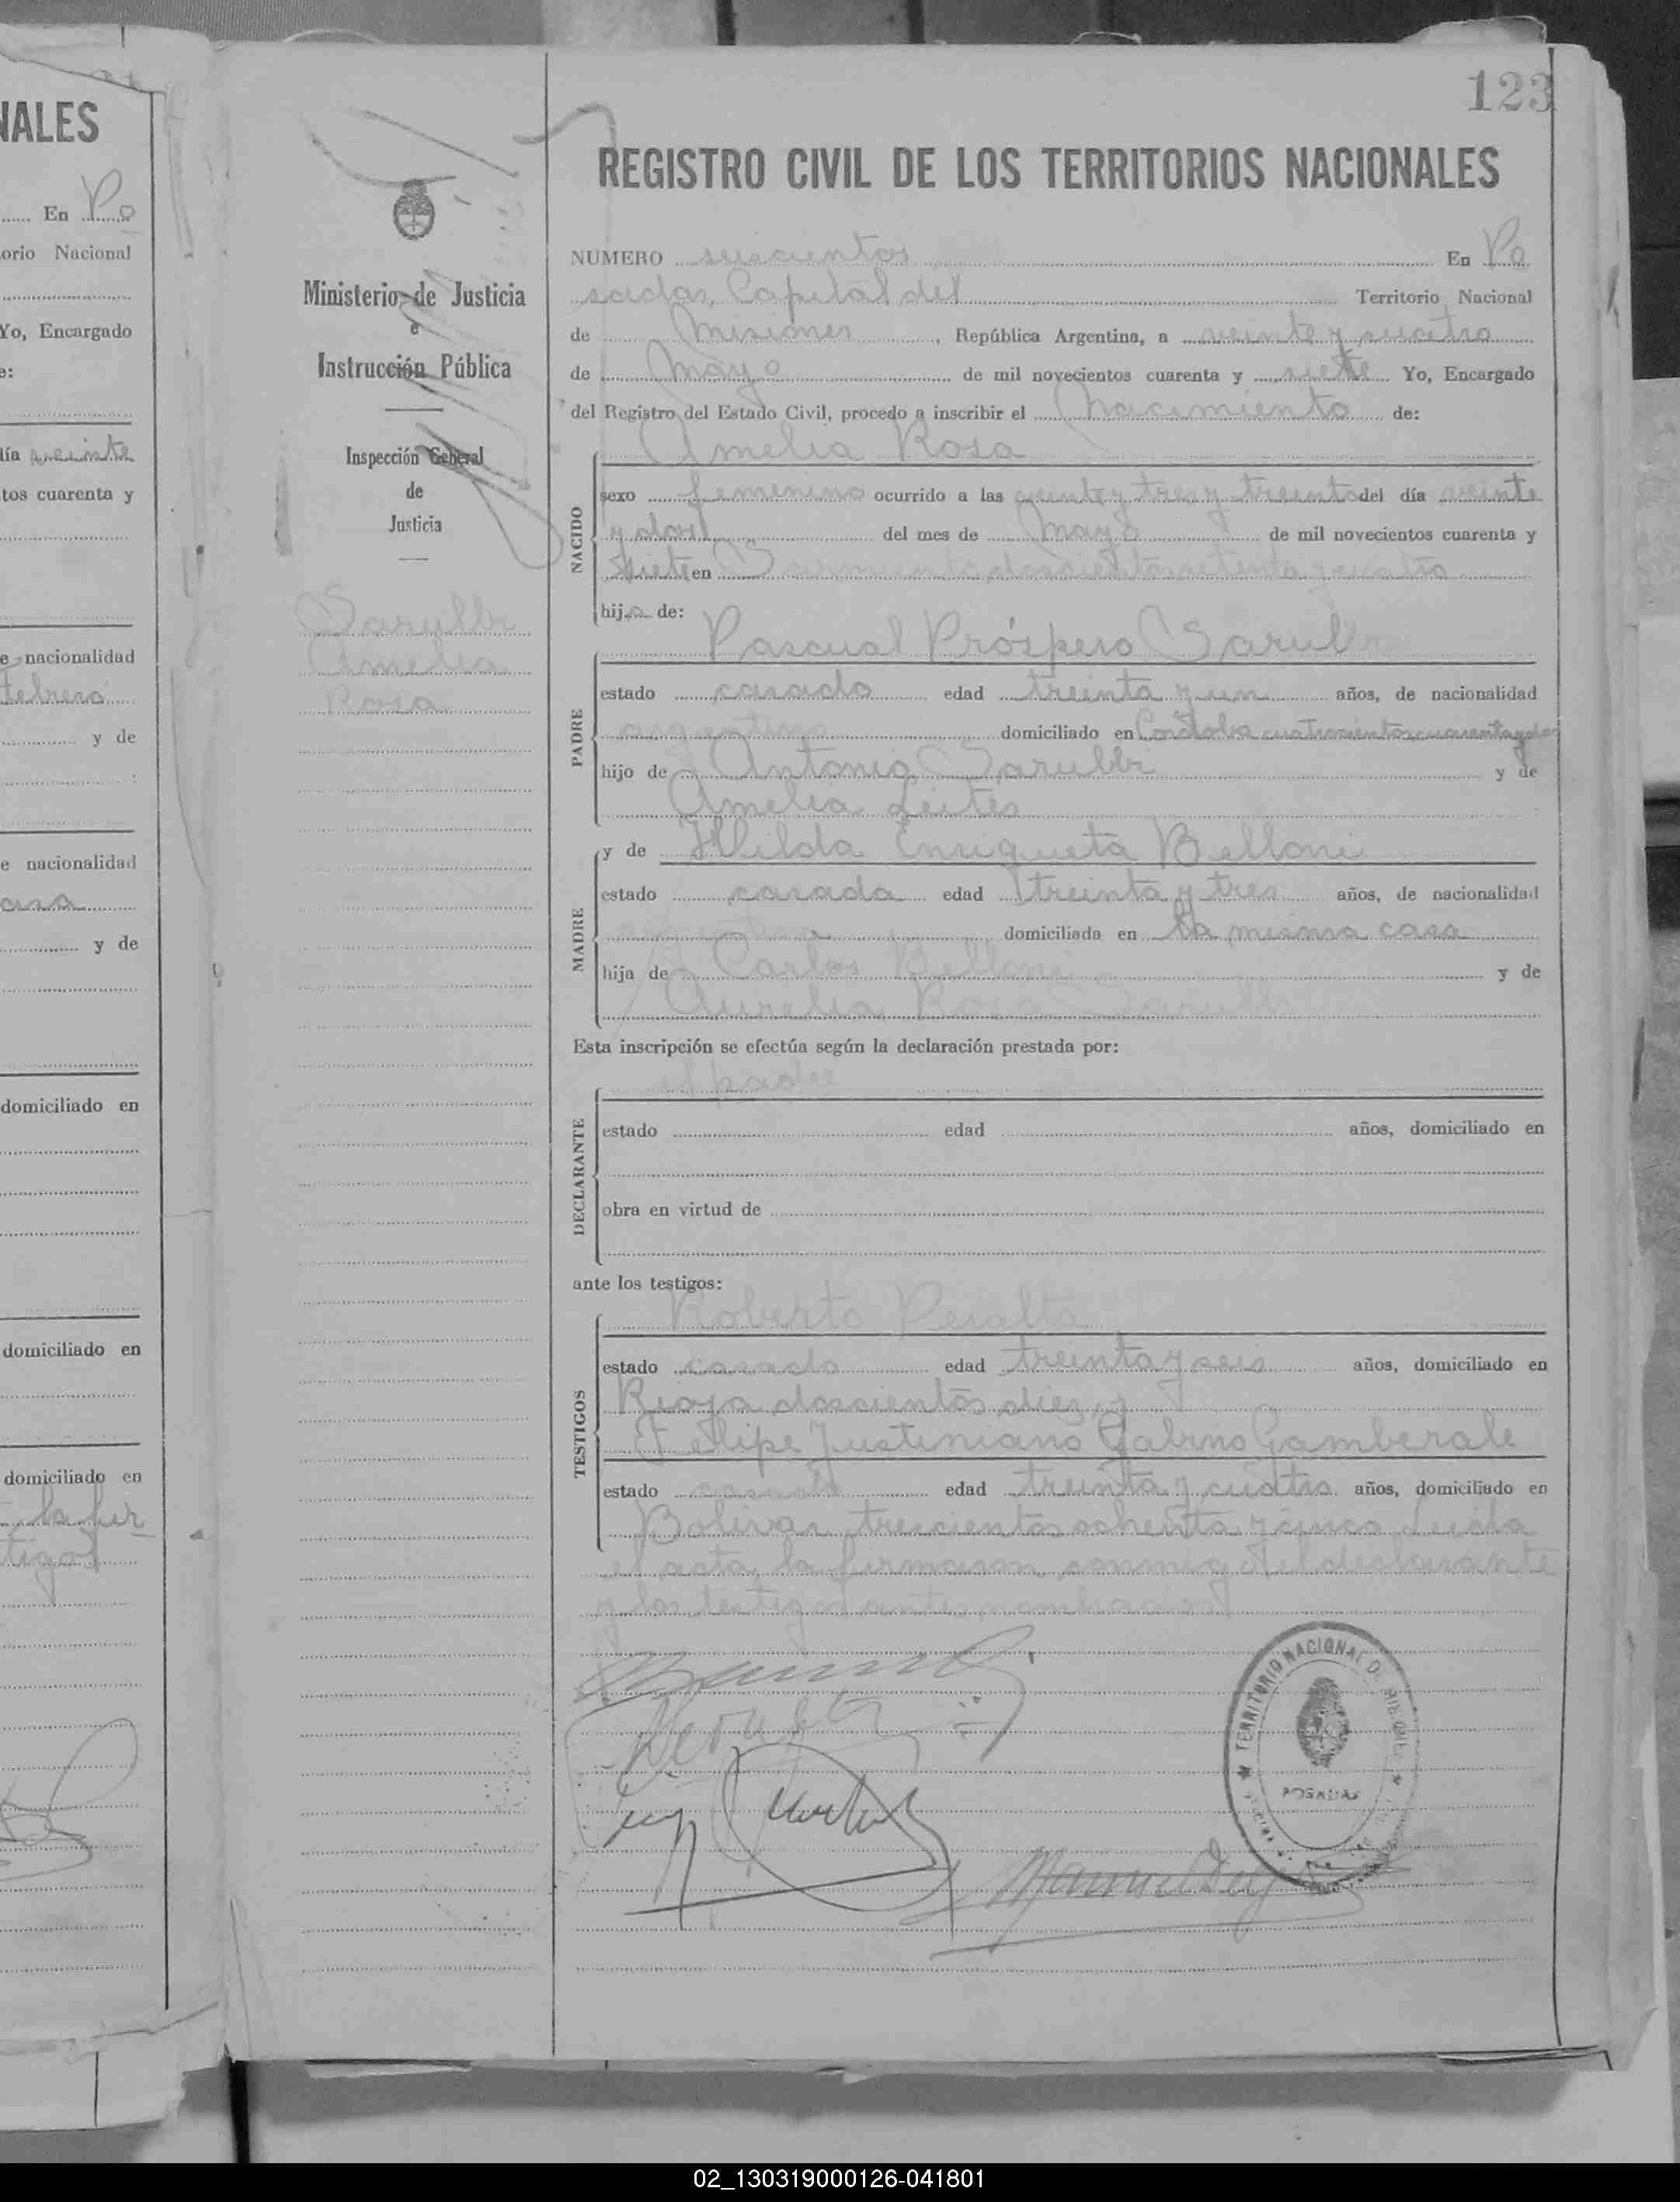 NALES
En Po
orio Nacional
Yo, Encargado
e:
día veinte
tos cuarenta y
e nacionalidad
febrero
y de
e nacionalidad
casa
y de
domiciliado en
domiciliado en
domiciliado en
123
Ministerio de Justicia
e
Instrucción Pública
Inspección General
de
Justicia
Sarubbi
Amelia
Rosa
REGISTRO CIVIL DE LOS TERRITORIOS NACIONALES
NUMERO seiscientos En Po
sadas, Capital del Territorio Nacional
de Misiones, República Argentina, a veinte y cuatro
de Mayo de mil novecientos cuarenta y siete Yo, Encargado
del Registro del Estado Civil, procedo a inscribir el Nacimiento de:
NACIDO
Amelia Rosa
sexo femenino ocurrido a las veinte y tres y treinta del día veinte
y dos del mes de Mayo de mil novecientos cuarenta y
siete en Sarmiento doscientos setenta y cuatro
hija de:
PADRE
Pascual Próspero Sarubbi
estado casado edad treinta y un años, de nacionalidad
argentina domiciliado en Córdoba cuatrocientos cuarenta y dos
hijo de Antonio Sarubbi y de
Amelia Leites
MADRE
y de Hilda Enriqueta Belloni
estado casada edad treinta y tres años, de nacionalidad
argentina domiciliada en la misma casa
hija de Carlos Belloni y de
Aurelia Rosa Sarubbi
Esta inscripción se efectúa según la declaración prestada por:
DECLARANTE
el padre
estado edad años, domiciliado en
obra en virtud de
ante los testigos:
TESTIGOS
Roberto Peralta
estado casado edad treinta y seis años, domiciliado en
Rioja doscientos diez, y
Felipe Justiniano Gabino Gamberale
estado casado edad treinta y cuatro años, domiciliado en
Bolívar trescientos ochenta y cinco. Leída
el acta, la firmaron conmigo el declarante
y los testigos antes nombrados
TERRITORIO NACIONAL DE MISIONES
POSADAS
02_130319000126-041801